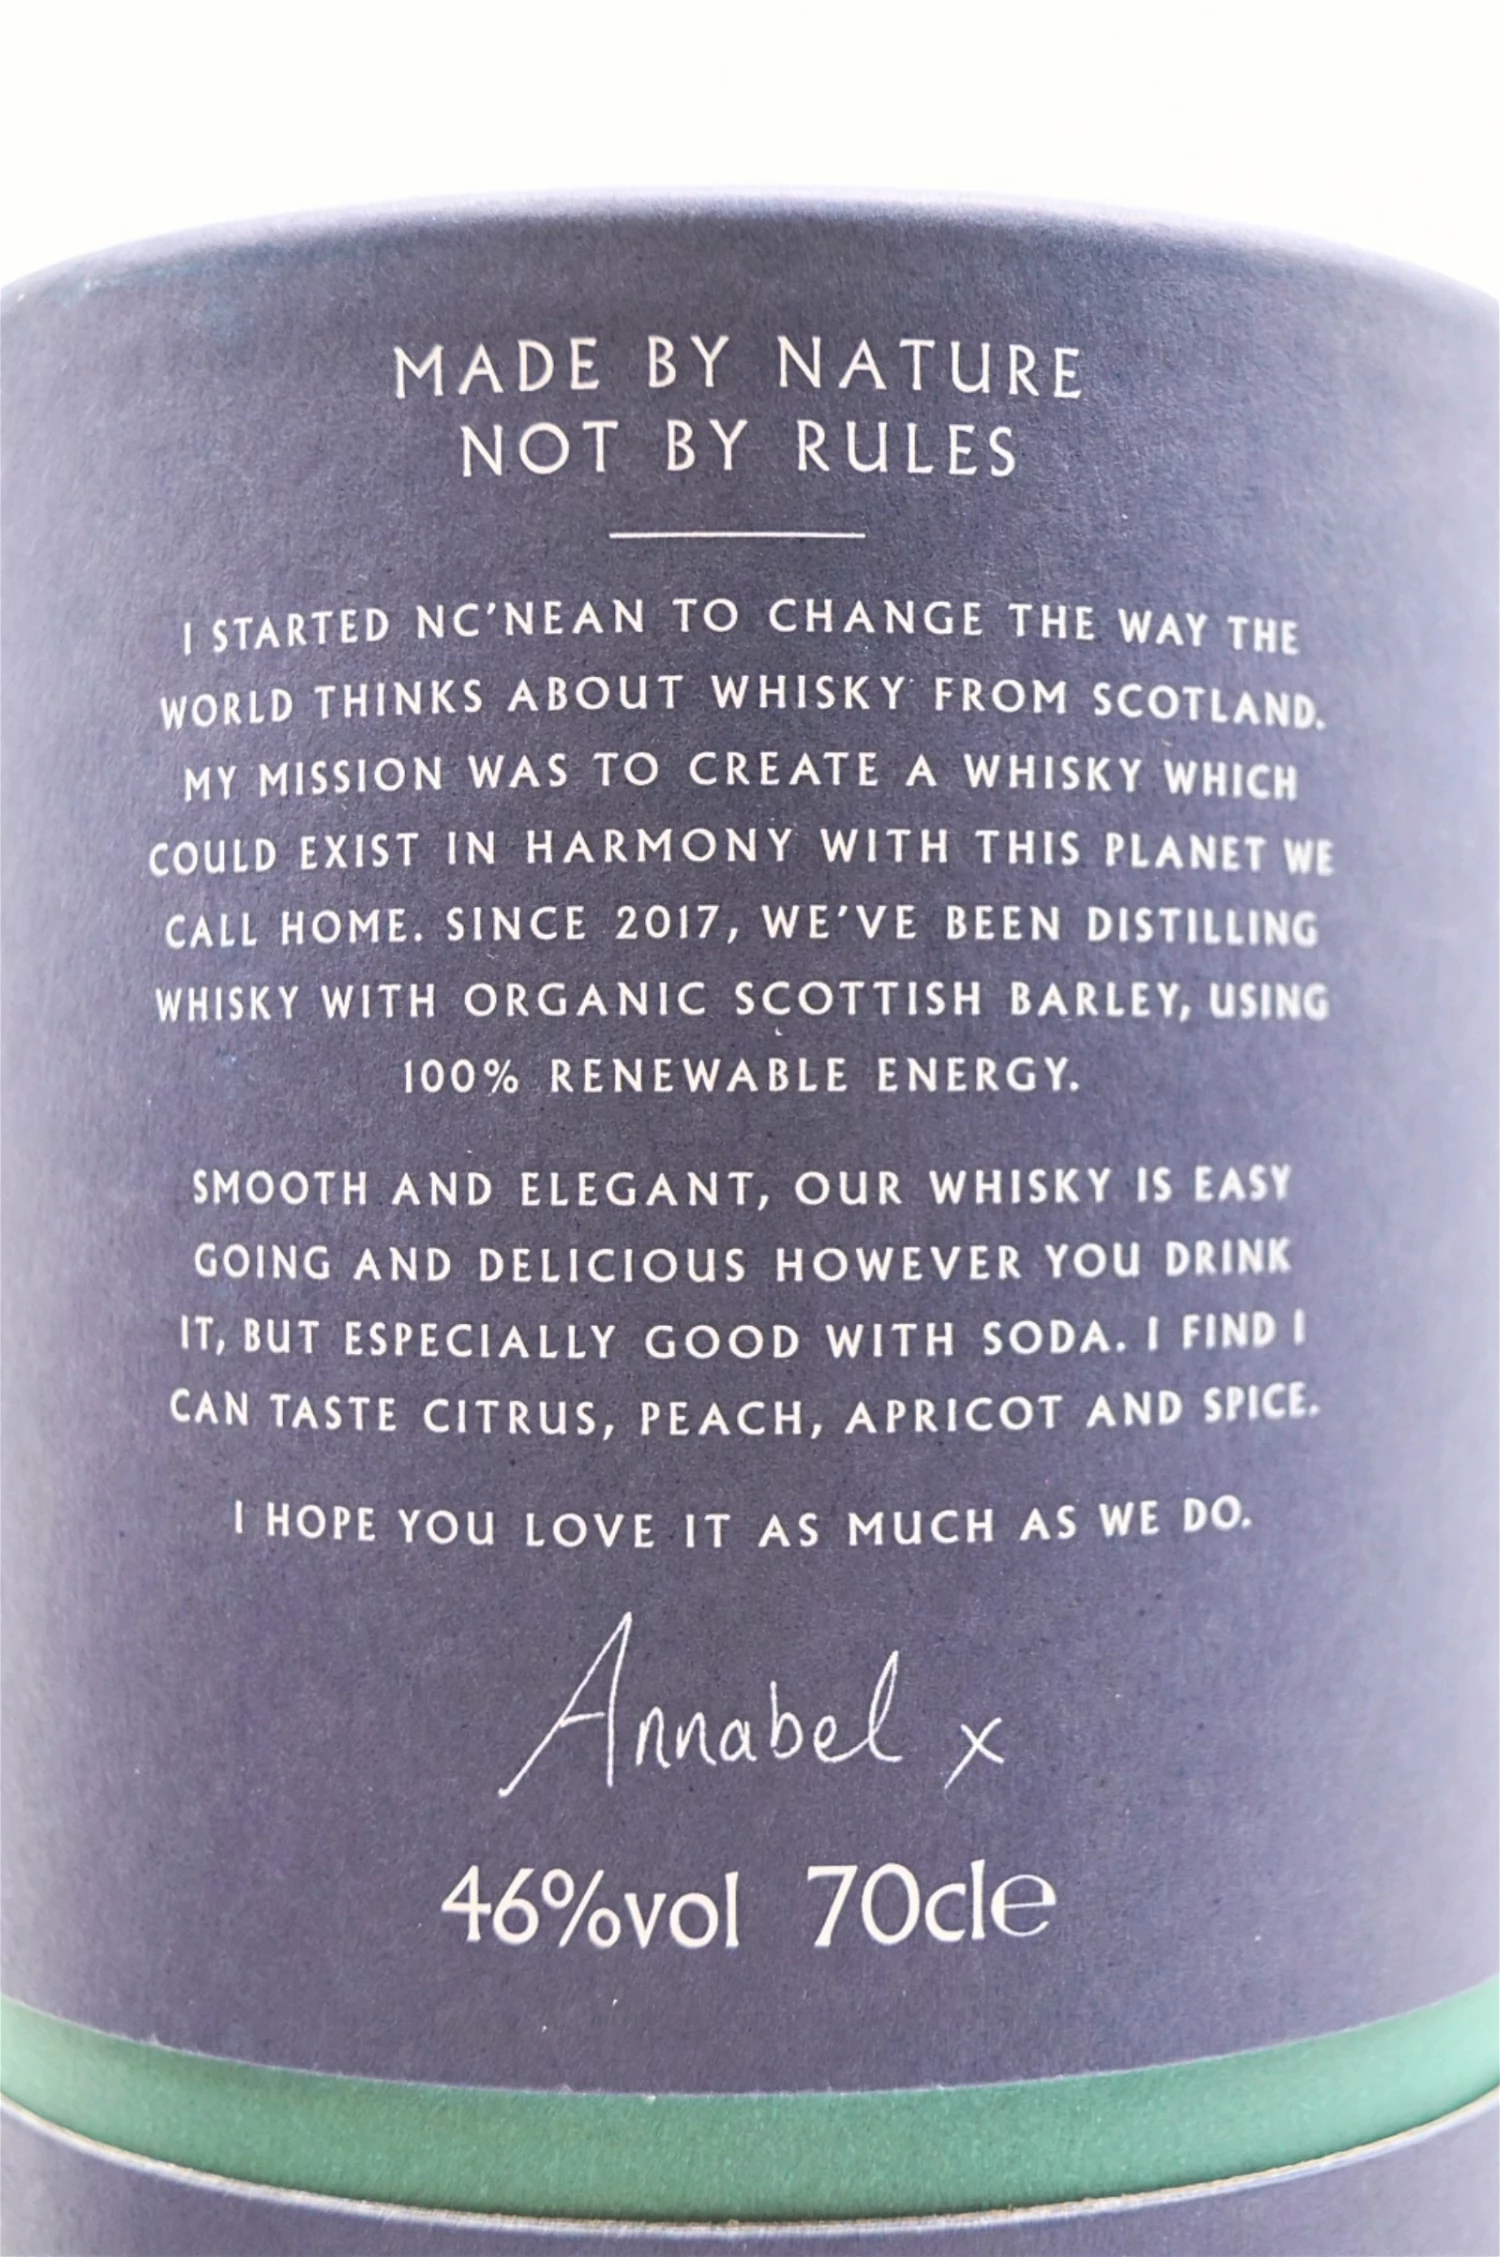 MADE BY NATURE
NOT BY RULES
I STARTED NC'NEAN TO CHANGE THE WAY THE
WORLD THINKS ABOUT WHISKY FROM SCOTLAND.
MY MISSION WAS TO CREATE A WHISKY WHICH
COULD EXIST IN HARMONY WITH THIS PLANET WE
CALL HOME. SINCE 2017, WE'VE BEEN DISTILLING
WHISKY WITH ORGANIC SCOTTISH BARLEY, USING
100% RENEWABLE ENERGY.
SMOOTH AND ELEGANT, OUR WHISKY IS EASY
GOING AND DELICIOUS HOWEVER YOU DRINK
IT, BUT ESPECIALLY GOOD WITH SODA. I FIND I
CAN TASTE CITRUS, PEACH, APRICOT AND SPICE.
I HOPE YOU LOVE IT AS MUCH AS WE DO.
Annabel x
46%vol 70cl℮